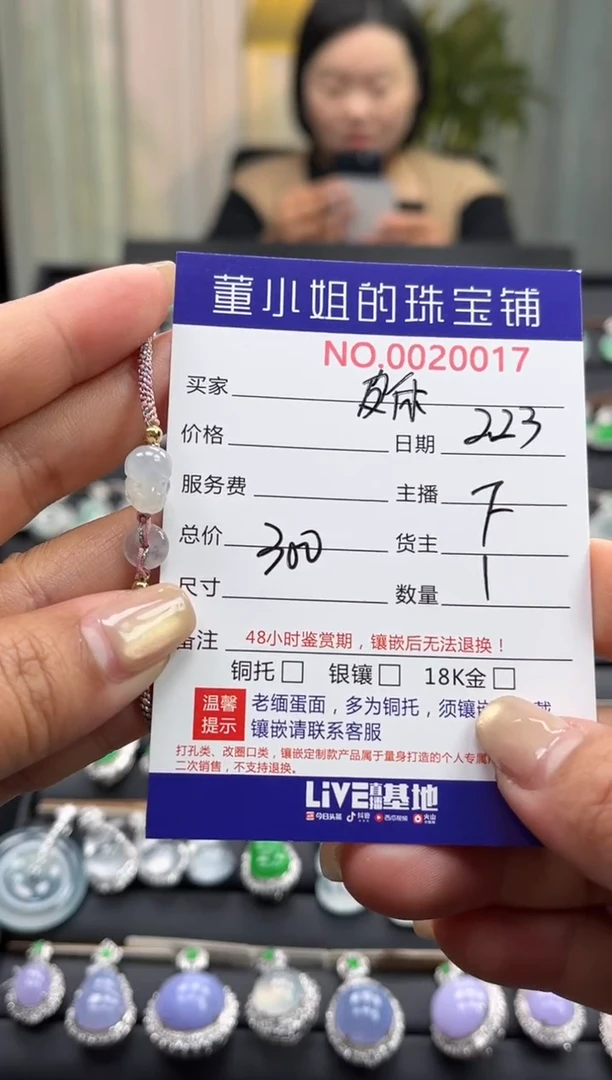 董小姐的珠宝铺
NO.0020017
买家
价格 日期 223
服务费 主播
总价 300 货主
尺寸 数量 1
备注 48小时鉴赏期，镶嵌后无法退换！
铜托□ 银镶□ 18K金□
温馨提示 老缅蛋面，多为铜托，须镶嵌
镶嵌请联系客服
打孔类、改圈口类，镶嵌定制款产品属于量身打造的个人专属
二次销售，不支持退换。
LiVE直播基地
今日头条 抖音 西瓜视频 火山